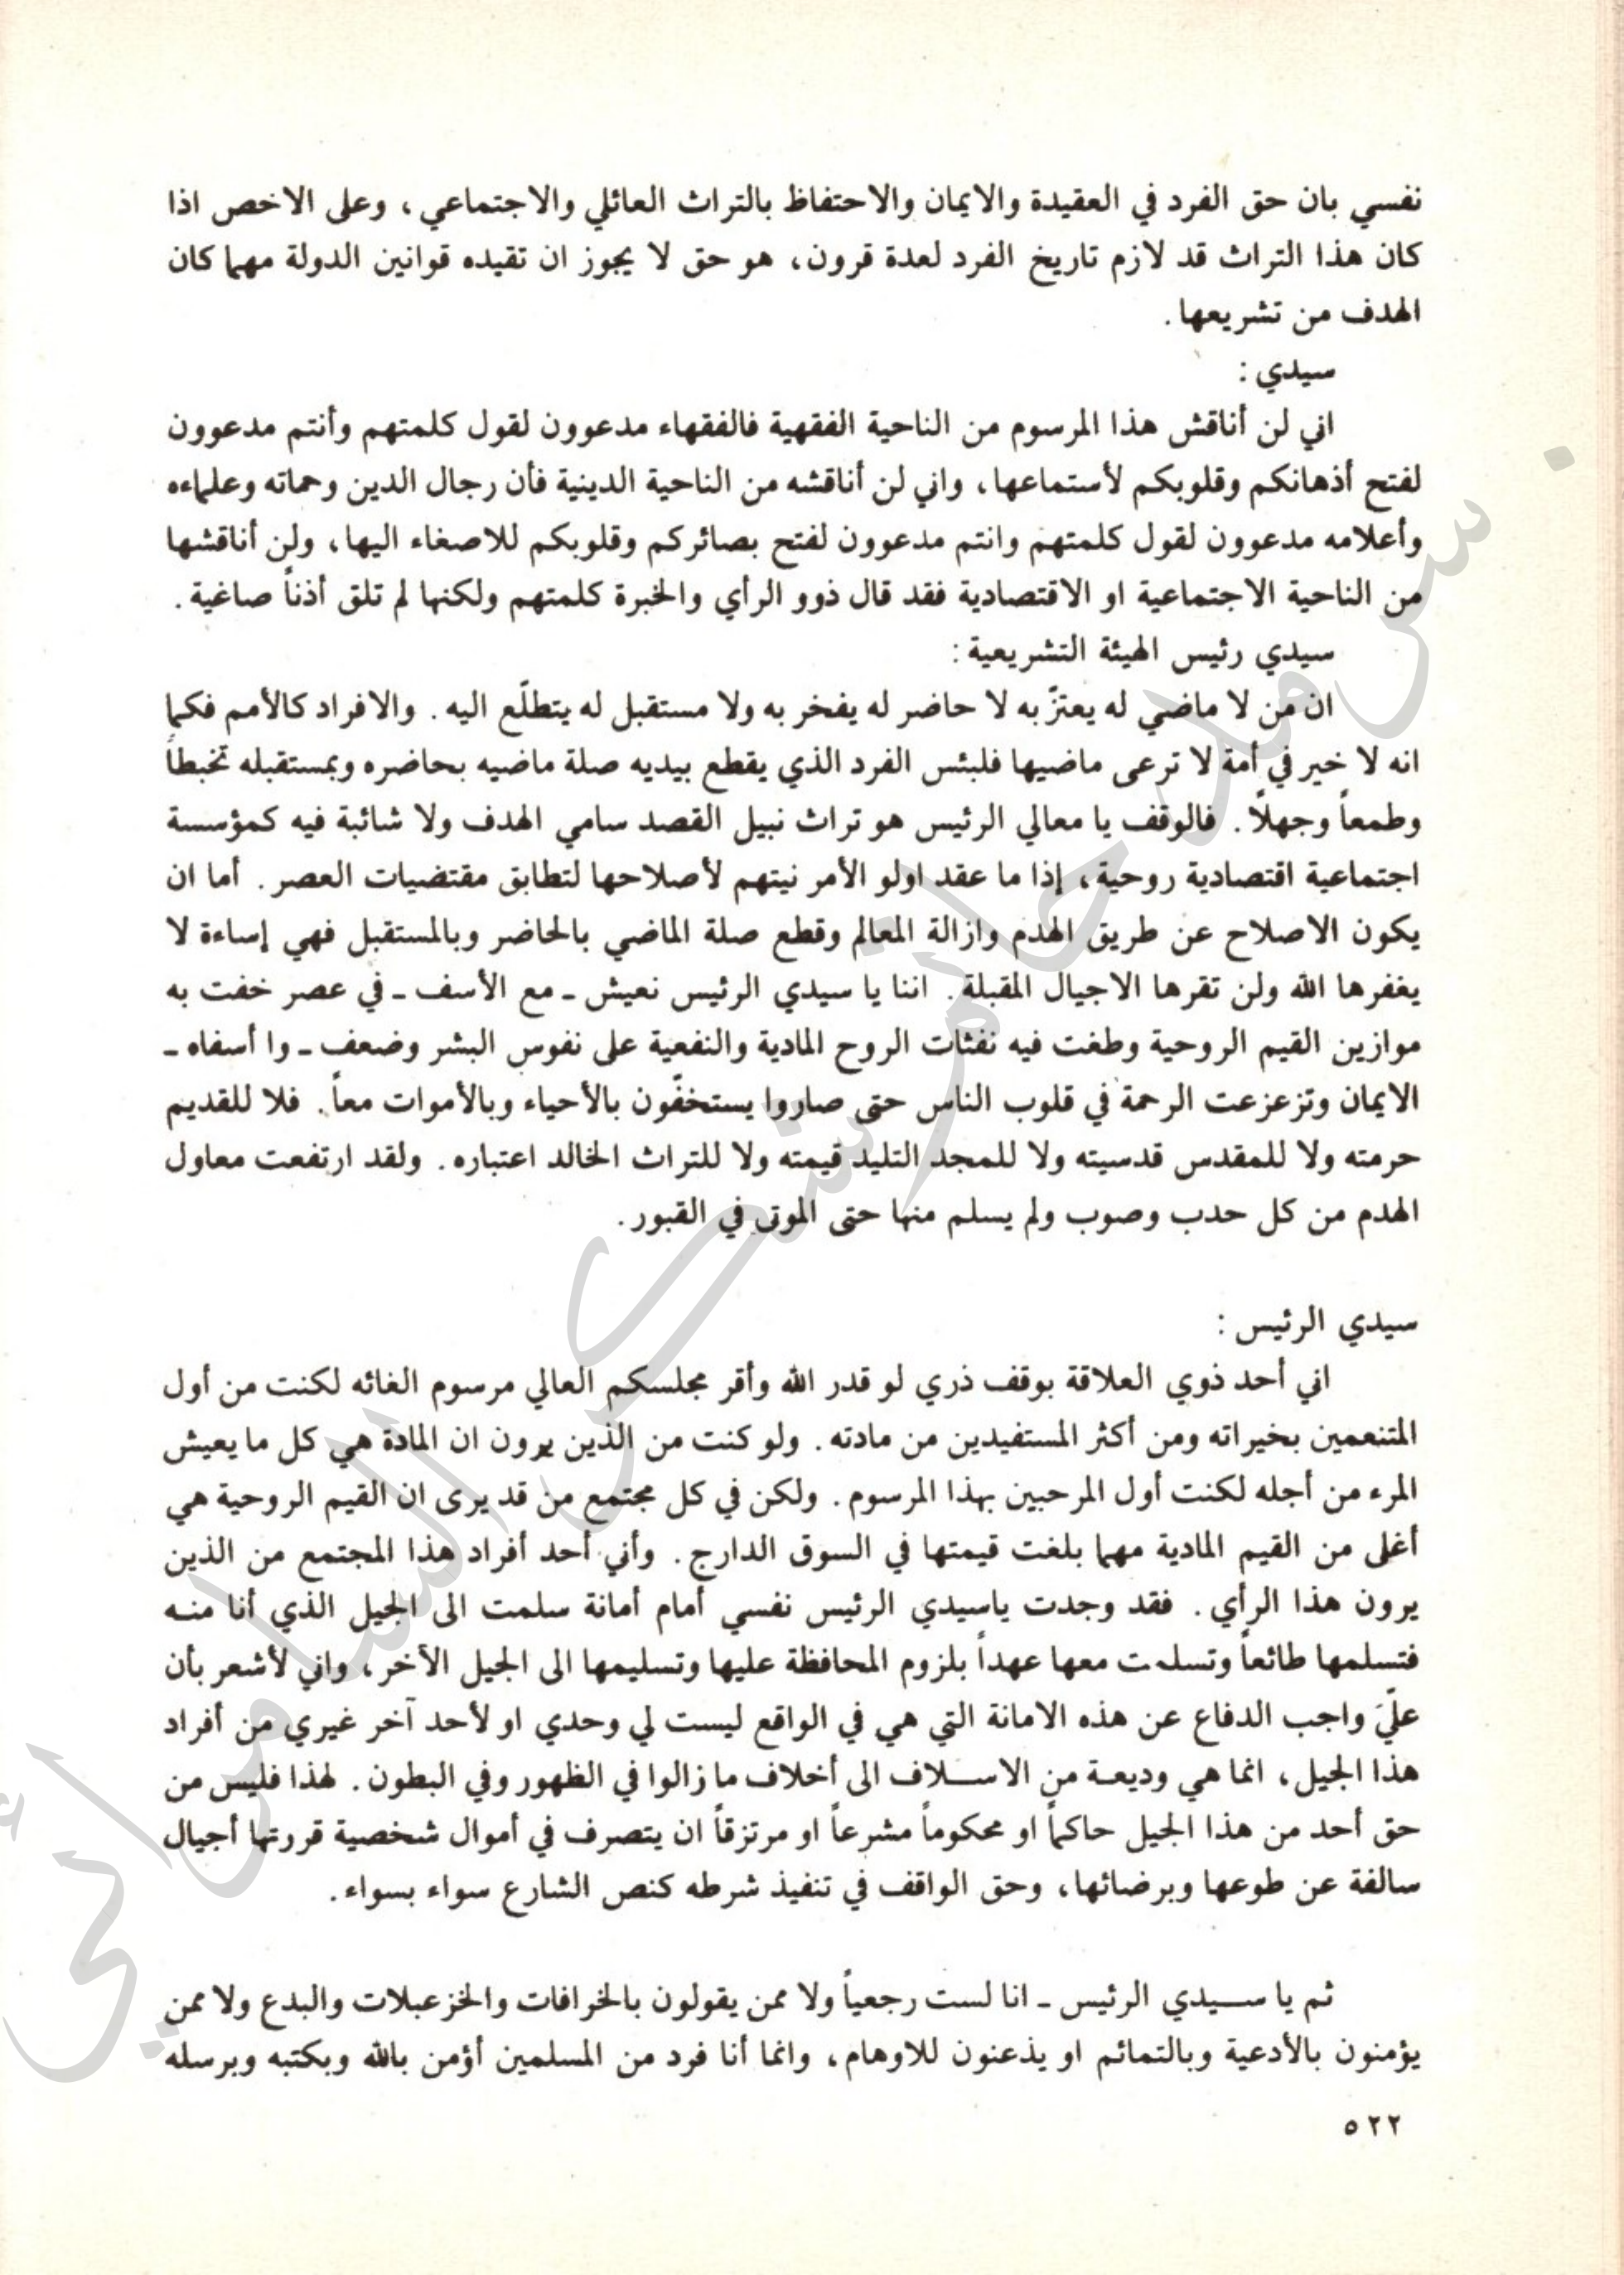 نفسي بان حق الفرد في العقيدة والايمان والاحتفاظ بالتراث العائلي والاجتماعي، وعلى الاخص اذا
كان هذا التراث قد لازم تاريخ الفرد لعدة قرون، هو حق لا يجوز ان تقيده قوانين الدولة مهما كان
الهدف من تشريعها.
سيدي :
اني لن أناقش هذا المرسوم من الناحية الفقهية فالفقهاء مدعوون لقول كلمتهم وأنتم مدعوون
لفتح أذهانكم وقلوبكم لأستماعها، واني لن أناقشه من الناحية الدينية فأن رجال الدين وحماته وعلماءه
وأعلامه مدعوون لقول كلمتهم وانتم مدعوون لفتح بصائركم وقلوبكم للاصغاء اليها، ولن أناقشها
من الناحية الاجتماعية او الاقتصادية فقد قال ذوو الرأي والخبرة كلمتهم ولكنها لم تلق أذناً صاغية.
سيدي رئيس الهيئة التشريعية :
ان من لا ماضي له يعتزّ به لا حاضر له يفخر به ولا مستقبل له يتطلّع اليه. والافراد كالأمم فكما
انه لا خير في أمة لا ترعى ماضيها فلبئس الفرد الذي يقطع بيديه صلة ماضيه بحاضره وبمستقبله تخبطاً
وطمعاً وجهلاً. فالوقف يا معالي الرئيس هو تراث نبيل القصد سامي الهدف ولا شائبة فيه كمؤسسة
اجتماعية اقتصادية روحية، إذا ما عقد اولو الأمر نيتهم لأصلاحها لتطابق مقتضيات العصر. أما ان
يكون الاصلاح عن طريق الهدم وازالة المعالم وقطع صلة الماضي بالحاضر وبالمستقبل فهي إساءة لا
يغفرها الله ولن تقرها الاجيال المقبلة. اننا يا سيدي الرئيس نعيش ـ مع الأسف ـ في عصر خفت به
موازين القيم الروحية وطغت فيه نفثات الروح المادية والنفعية على نفوس البشر وضعف ـ وا أسفاه ـ
الايمان وتزعزعت الرحمة في قلوب الناس حتى صاروا يستخفّون بالأحياء وبالأموات معاً. فلا للقديم
حرمته ولا للمقدس قدسيته ولا للمجد التليد قيمته ولا للتراث الخالد اعتباره. ولقد ارتفعت معاول
الهدم من كل حدب وصوب ولم يسلم منها حتى الموتى في القبور.
سيدي الرئيس :
اني أحد ذوي العلاقة بوقف ذري لو قدر الله وأقر مجلسكم العالي مرسوم الغائه لكنت من أول
المتنعمين بخيراته ومن أكثر المستفيدين من مادته. ولو كنت من الذين يرون ان المادة هي كل ما يعيش
المرء من أجله لكنت أول المرحبين بهذا المرسوم. ولكن في كل مجتمع من قد يرى ان القيم الروحية هي
أغلى من القيم المادية مهما بلغت قيمتها في السوق الدارج. وأني أحد أفراد هذا المجتمع من الذين
يرون هذا الرأي. فقد وجدت ياسيدي الرئيس نفسي أمام أمانة سلمت الى الجيل الذي أنا منه
فتسلمها طائعاً وتسلمت معها عهداً بلزوم المحافظة عليها وتسليمها الى الجيل الآخر، واني لأشعر بأن
عليّ واجب الدفاع عن هذه الامانة التي هي في الواقع ليست لي وحدي او لأحد آخر غيري من أفراد
هذا الجيل، انما هي وديعة من الاسلاف الى أخلاف ما زالوا في الظهور وفي البطون. لهذا فليس من
حق أحد من هذا الجيل حاكماً او محكوماً مشرعاً او مرتزقاً ان يتصرف في أموال شخصية قررتها أجيال
سالفة عن طوعها وبرضائها، وحق الواقف في تنفيذ شرطه كنص الشارع سواء بسواء.
ثم يا سيدي الرئيس ـ انا لست رجعياً ولا ممن يقولون بالخرافات والخزعبلات والبدع ولا ممن
يؤمنون بالأدعية وبالتمائم او يذعنون للاوهام، وانما أنا فرد من المسلمين أؤمن بالله وبكتبه وبرسله
٥٢٢